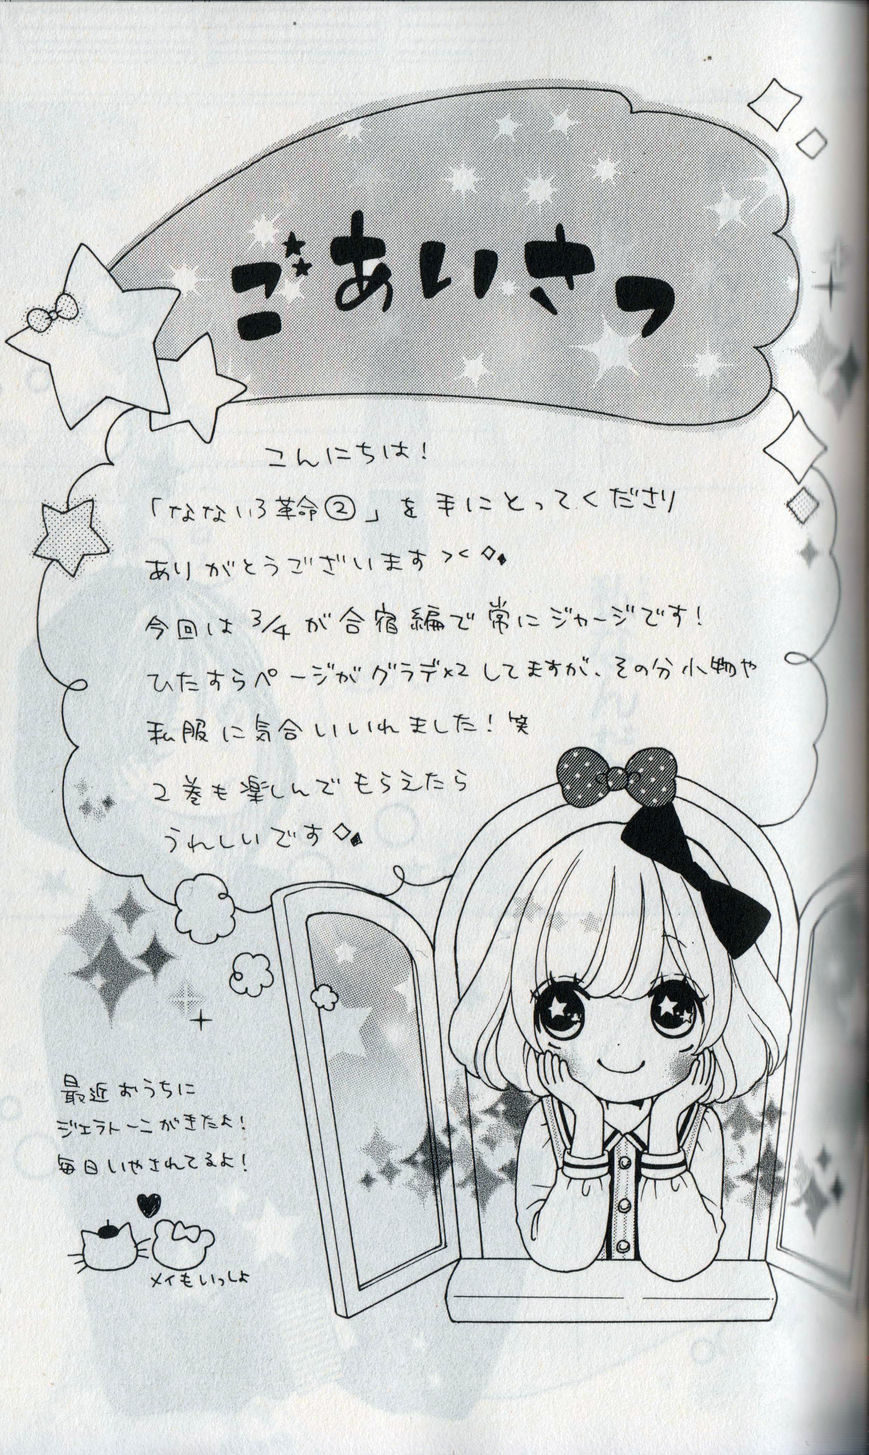 ごあいさつ
こんにちは！
「なないろ革命②」を手にとってくださり
ありがとうございます><
今回は3/4が合宿編で常にジャージです！
ひたすらページがグラデ×2してますが、その分小物や
私服に気合いいれました！笑
2巻も楽しんでもらえたら
うれしいです
最近おうちに
ジェラトーニがきたよ！
毎日いやされてるよ！
メイもいっしょ